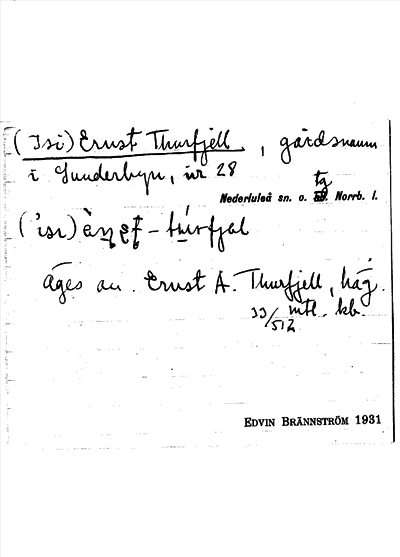 (Isi) Ernst Thurfjell, gårdsnamn
i Sunderbyn, nr 28
Nederluleå sn. o. tg. Norrb. l.
('isi) - 
äges av Ernst A. Thurfjell, häg.
33/512 mtl. kb.
EDVIN BRÄNNSTRÖM 1931